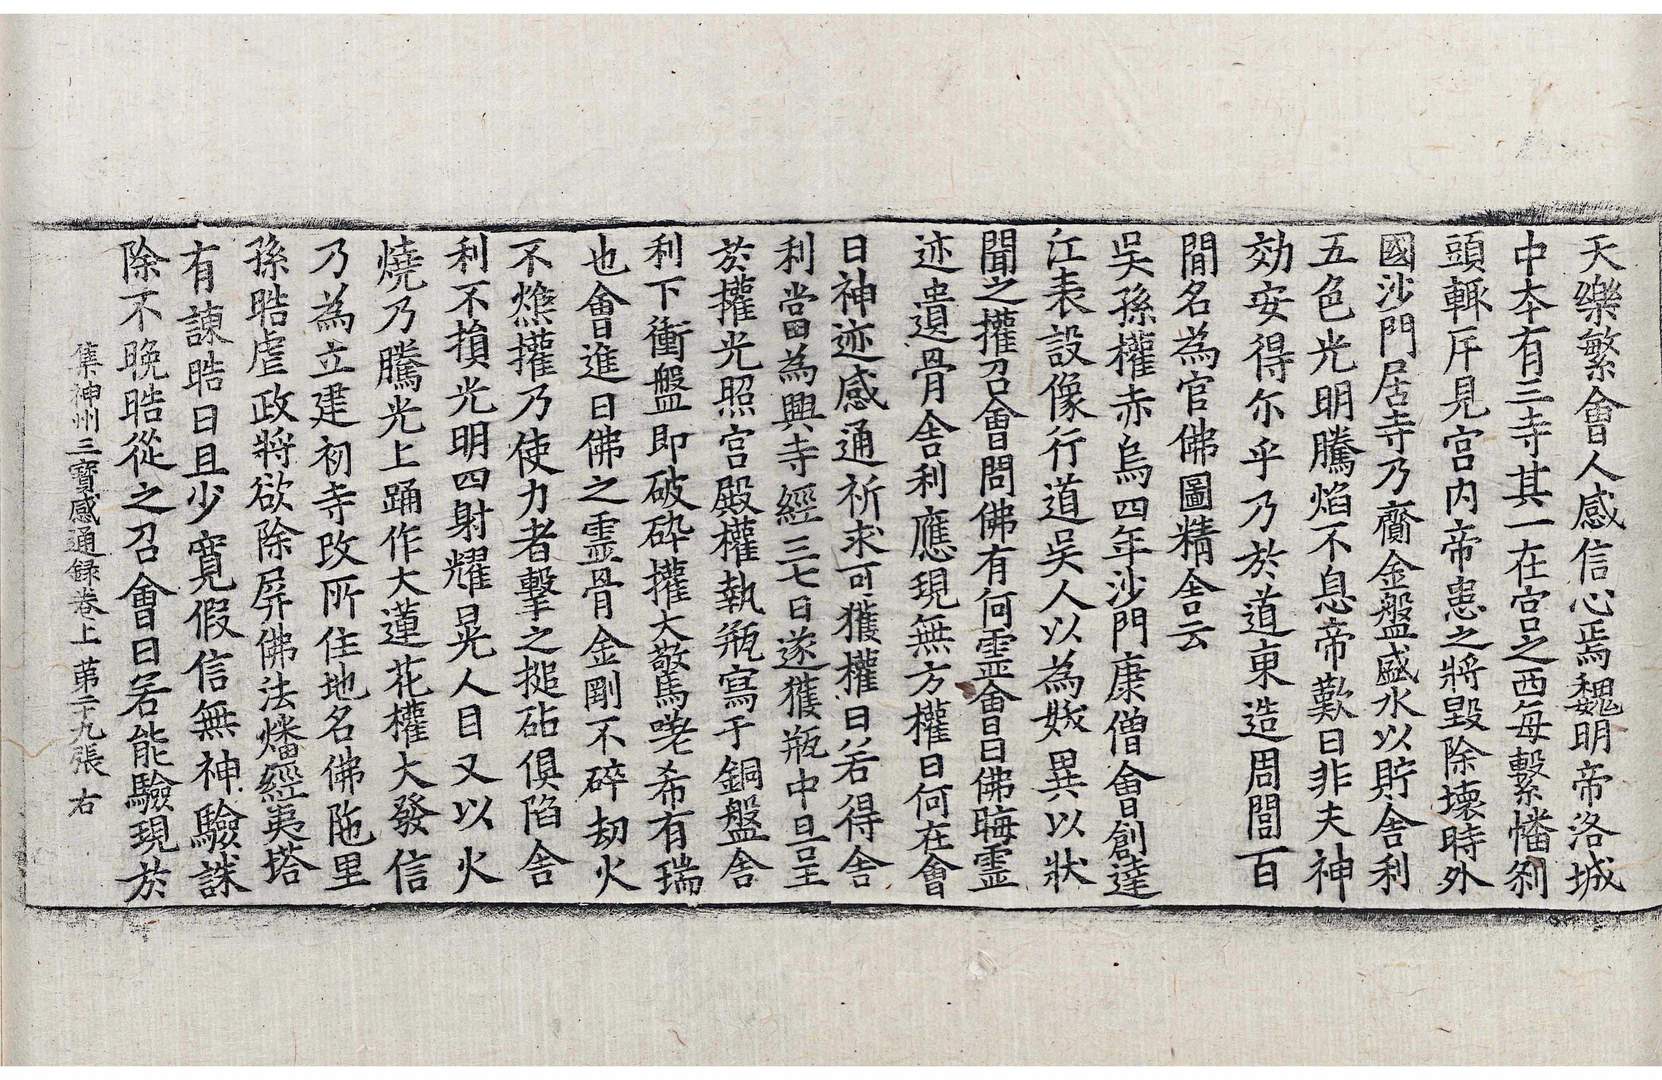 天樂繁會人感信心焉魏明帝洛城
中夲有三寺其一在宮之西每繫幡刹
頭輒斥見宮内帝患之將毀除壞時外
國沙門居寺乃齎金盤盛水以貯舍利
五色光明騰焰不息帝歎曰非夫神
効安得尒乎乃於道東造周閭百
閒名為官佛圖精舍云
吳孫權赤烏四年沙門康僧會創達
江表設像行道吳人以為妖異以狀
聞之權召會問佛有何靈會曰佛晦靈
迹遺骨舍利應現無方權曰何在會
曰神迹感通祈求可獲權曰若得舍
利當為興寺經三七日遂獲瓶中旦呈
於權光照宮殿權執瓶寫于銅盤舍
利下衝盤即破碎權大驚嗟希有瑞
也會進曰佛之靈骨金剛不碎劫火
不燋權乃使力者擊之搥砧俱陷舍
利不損光明四射耀晃人目又以火
燒乃騰光上踊作大蓮花權大發信
乃為立建初寺改所住地名佛陁里
孫晧虐政將欲除屏佛法燔經夷塔
有諫晧曰且少寬假信無神驗誅
除不晚晧從之召會曰若能驗現於
集神州三寶感通録卷上 苐二十九張 右